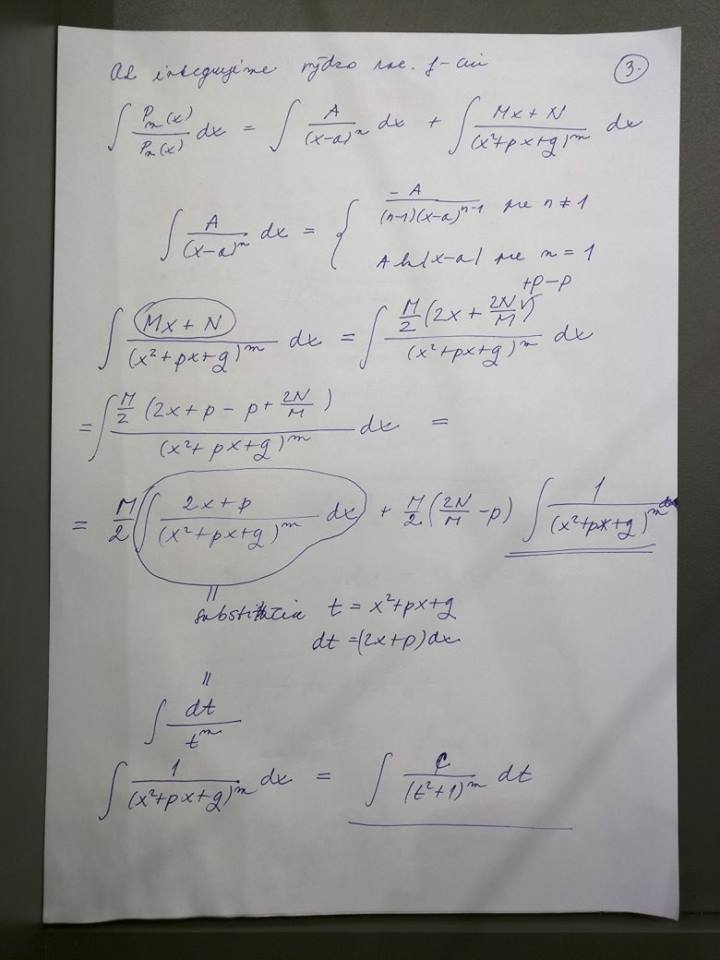 Ak integrujeme rýdzo rac. f-ciu
3.
∫ Pₘ(x)/Pₙ(x) dx = ∫ A/(x-a)ⁿ dx + ∫ (Mx+N)/(x²+px+q)ᵐ dx
∫ A/(x-a)ⁿ dx = { -A/((n-1)(x-a)ⁿ⁻¹) pre n≠1
A ln|x-a| pre n=1
+p-p
∫ (Mx+N)/(x²+px+q)ᵐ dx = ∫ M/2 (2x + 2N/M)/(x²+px+q)ᵐ dx
= ∫ M/2 (2x+p-p+ 2N/M)/(x²+px+q)ᵐ dx =
= M/2 ∫ (2x+p)/(x²+px+q)ᵐ dx + M/2 (2N/M -p) ∫ 1/(x²+px+q)ᵐ dx
=
substitúcia t = x²+px+q
dt =(2x+p)dx
=
∫ dt/tᵐ
∫ 1/(x²+px+q)ᵐ dx = ∫ C/(t²+1)ᵐ dt